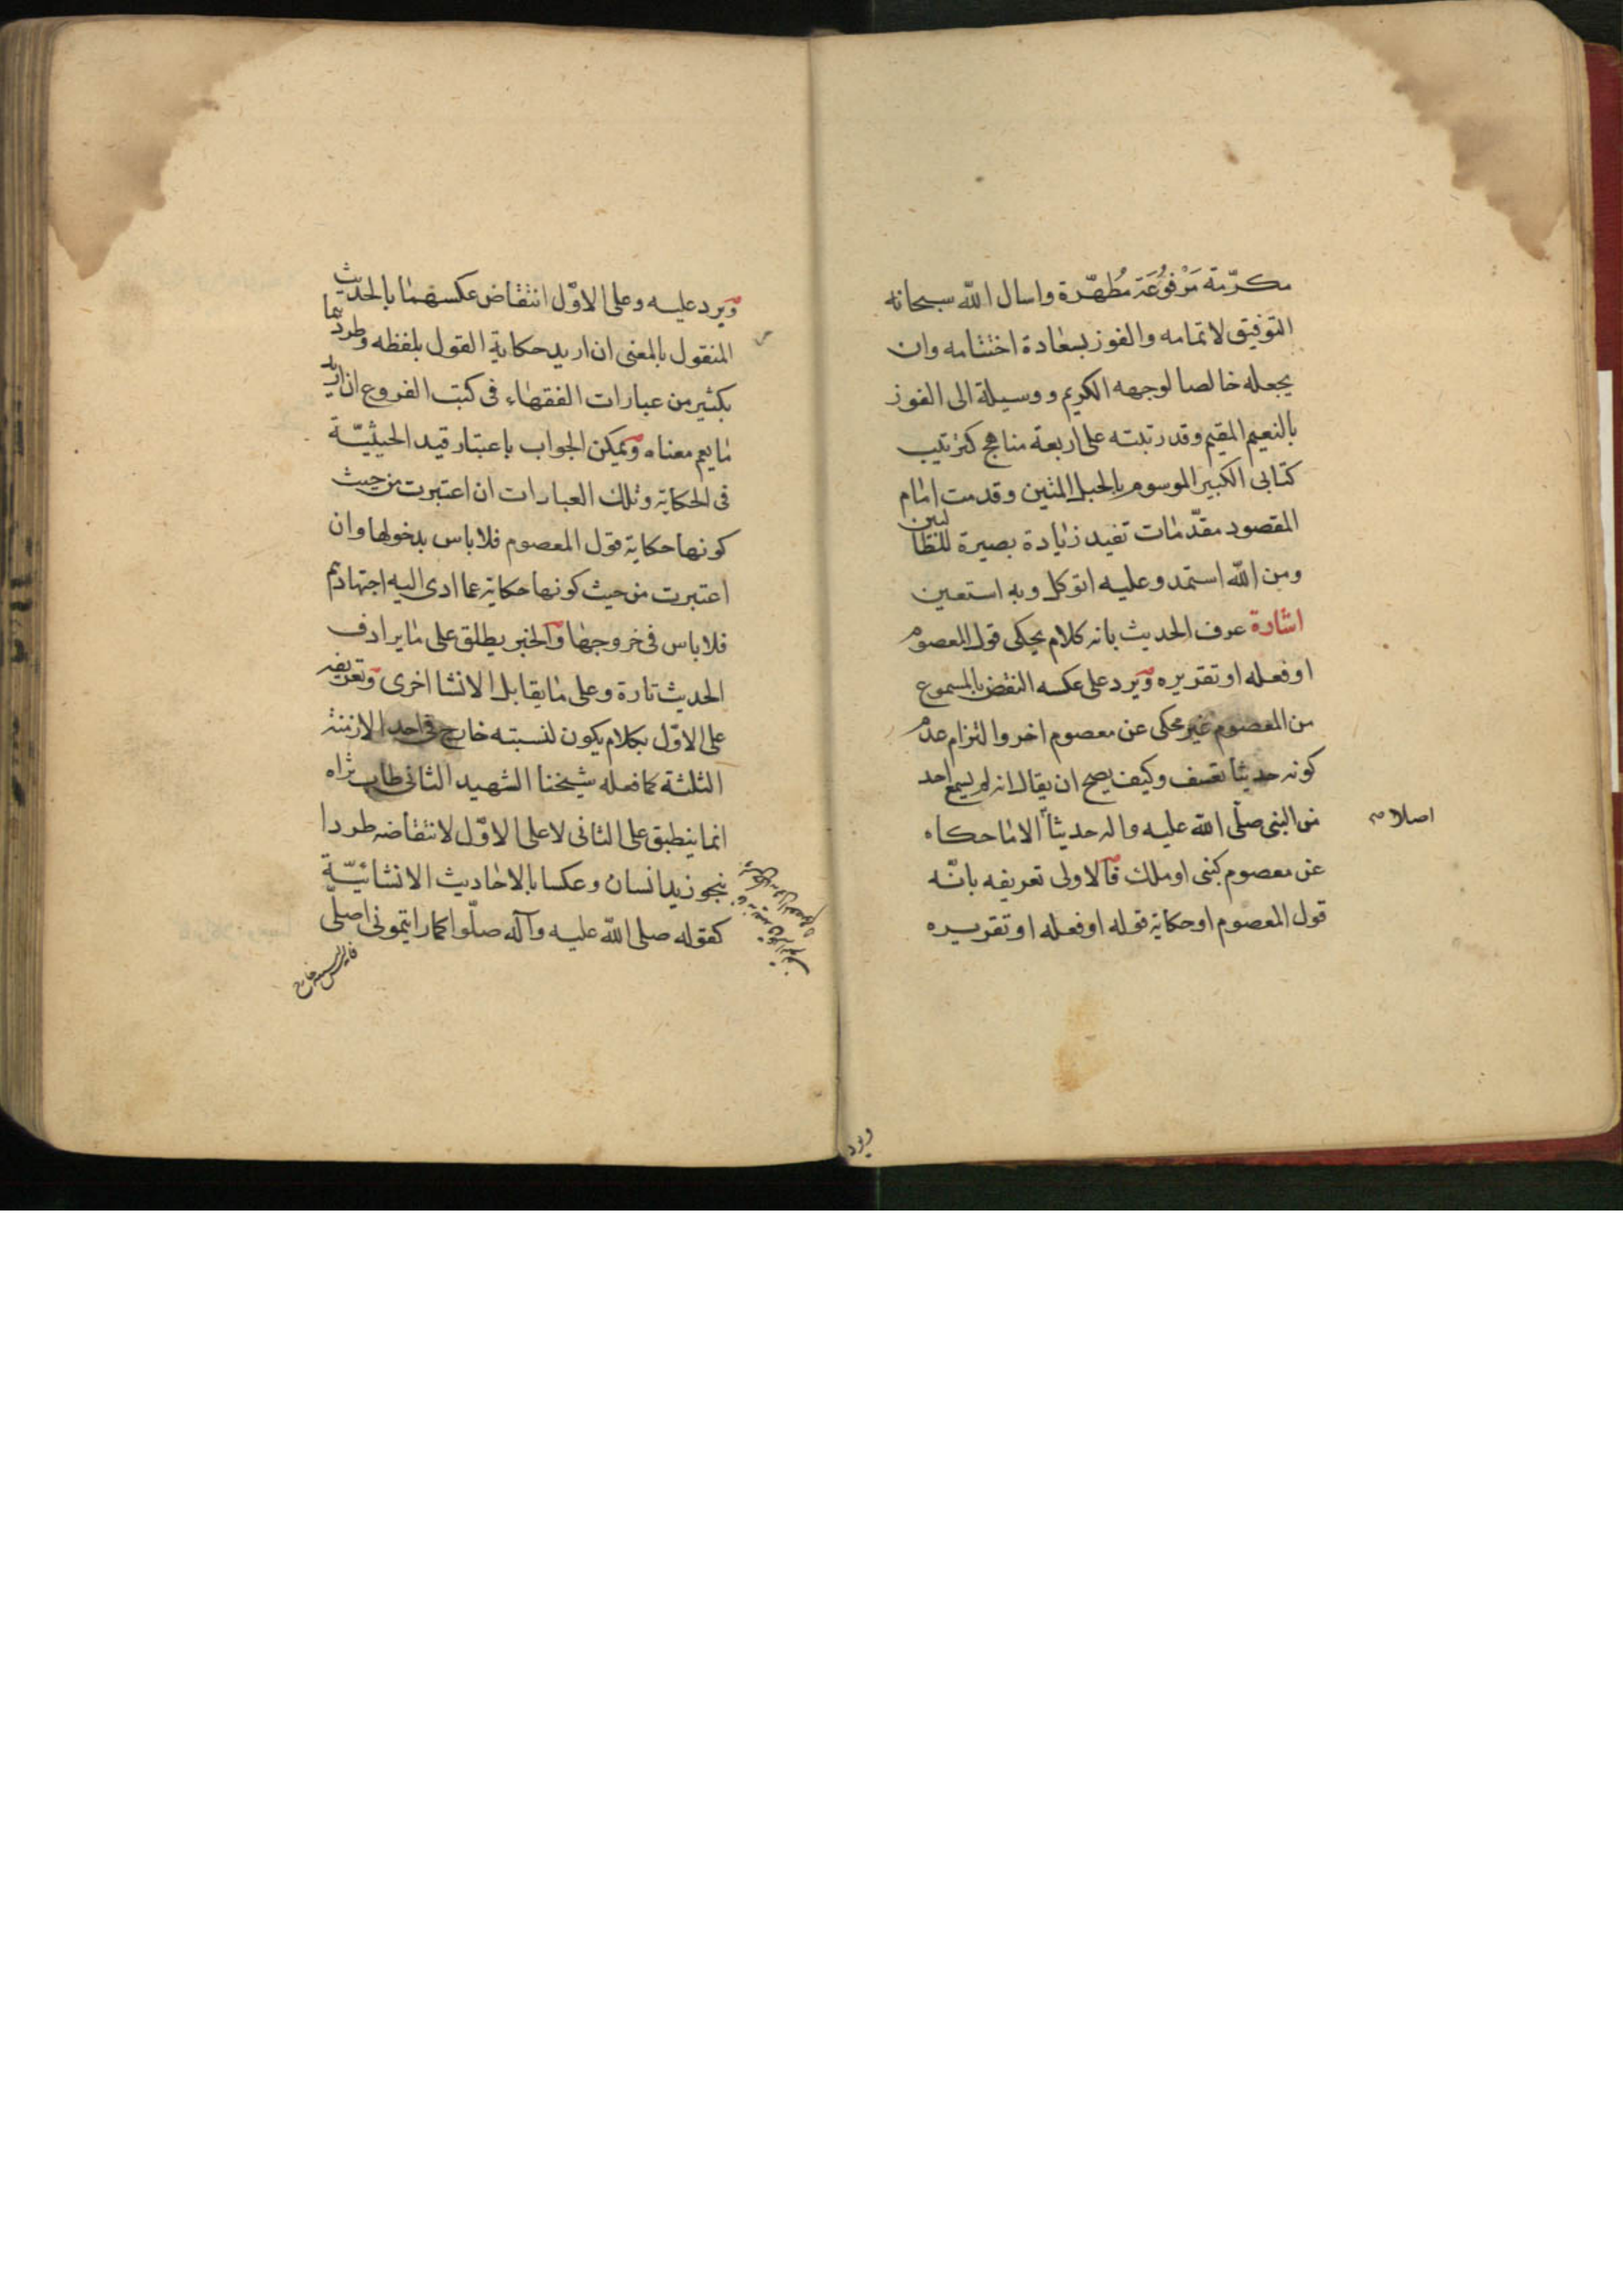 مكرّمة مَرْفُوعَة مُطَهَّرة واسال اللّه سبحانه
التوفيق لاتمامه والفوز بسعادة اختتامه وان
يجعله خالصا لوجهه الكريم ووسيلة الى الفوز
بالنعيم المقيم وقد رتبته على اربعة مناهج كترتيب
كتابى الكبير الموسوم بالحبل المتين وقدمت امام
المقصود مقدّمات تفيد زيادة بصيرة للطالبين
ومن اللّه استمد وعليه اتوكل وبه استعين
اشارة عرف الحديث بانه كلام يحكى قول المعصوم
او فعله او تقريره ويرد على عكسه النقض بالمسموع
من المعصوم غير محكى عن معصوم اخر والتزام عدم
كونه حديثا تعسف وكيف يصح ان يقال انه لم يسمع احد
من النبى صلّى اللّه عليه واله حديثاً الا ما حكاه
اصلا
عن معصوم كنبى او ملك فالاولى تعريفه بانّه
قول المعصوم او حكاية قوله او فعله او تقريره
ويرد
ويرد عليه وعلى الاوّل انتقاض عكسهما بالحديث
المنقول بالمعنى ان اريد حكاية القول بلفظه وطردهما
بكثير من عبارات الفقهاء فى كتب الفروع ان اريد
ما يعم معناه ويمكن الجواب باعتبار قيد الحيثيّة
فى الحكاية وتلك العبارات ان اعتبرت من حيث
كونها حكاية قول المعصوم فلا باس بدخولها وان
اعتبرت من حيث كونها حكاية عما ادى اليه اجتهادهم
فلا باس فى خروجها والخبر يطلق على ما يرادف
الحديث تارة وعلى ما يقابل الانشا اخرى وتعريفه
على الاوّل بكلام يكون لنسبته خارج فى احد الازمنة
الثلثة كما فعله شيخنا الشهيد الثانى طاب ثراه
انما ينطبق على الثانى لا على الاوّل لانتقاضه طردا
بنحو زيد انسان وعكسا بالاحاديث الانشائيّة
كقوله صلى اللّه عليه وآله صلّوا كما رايتمونى اصلّى